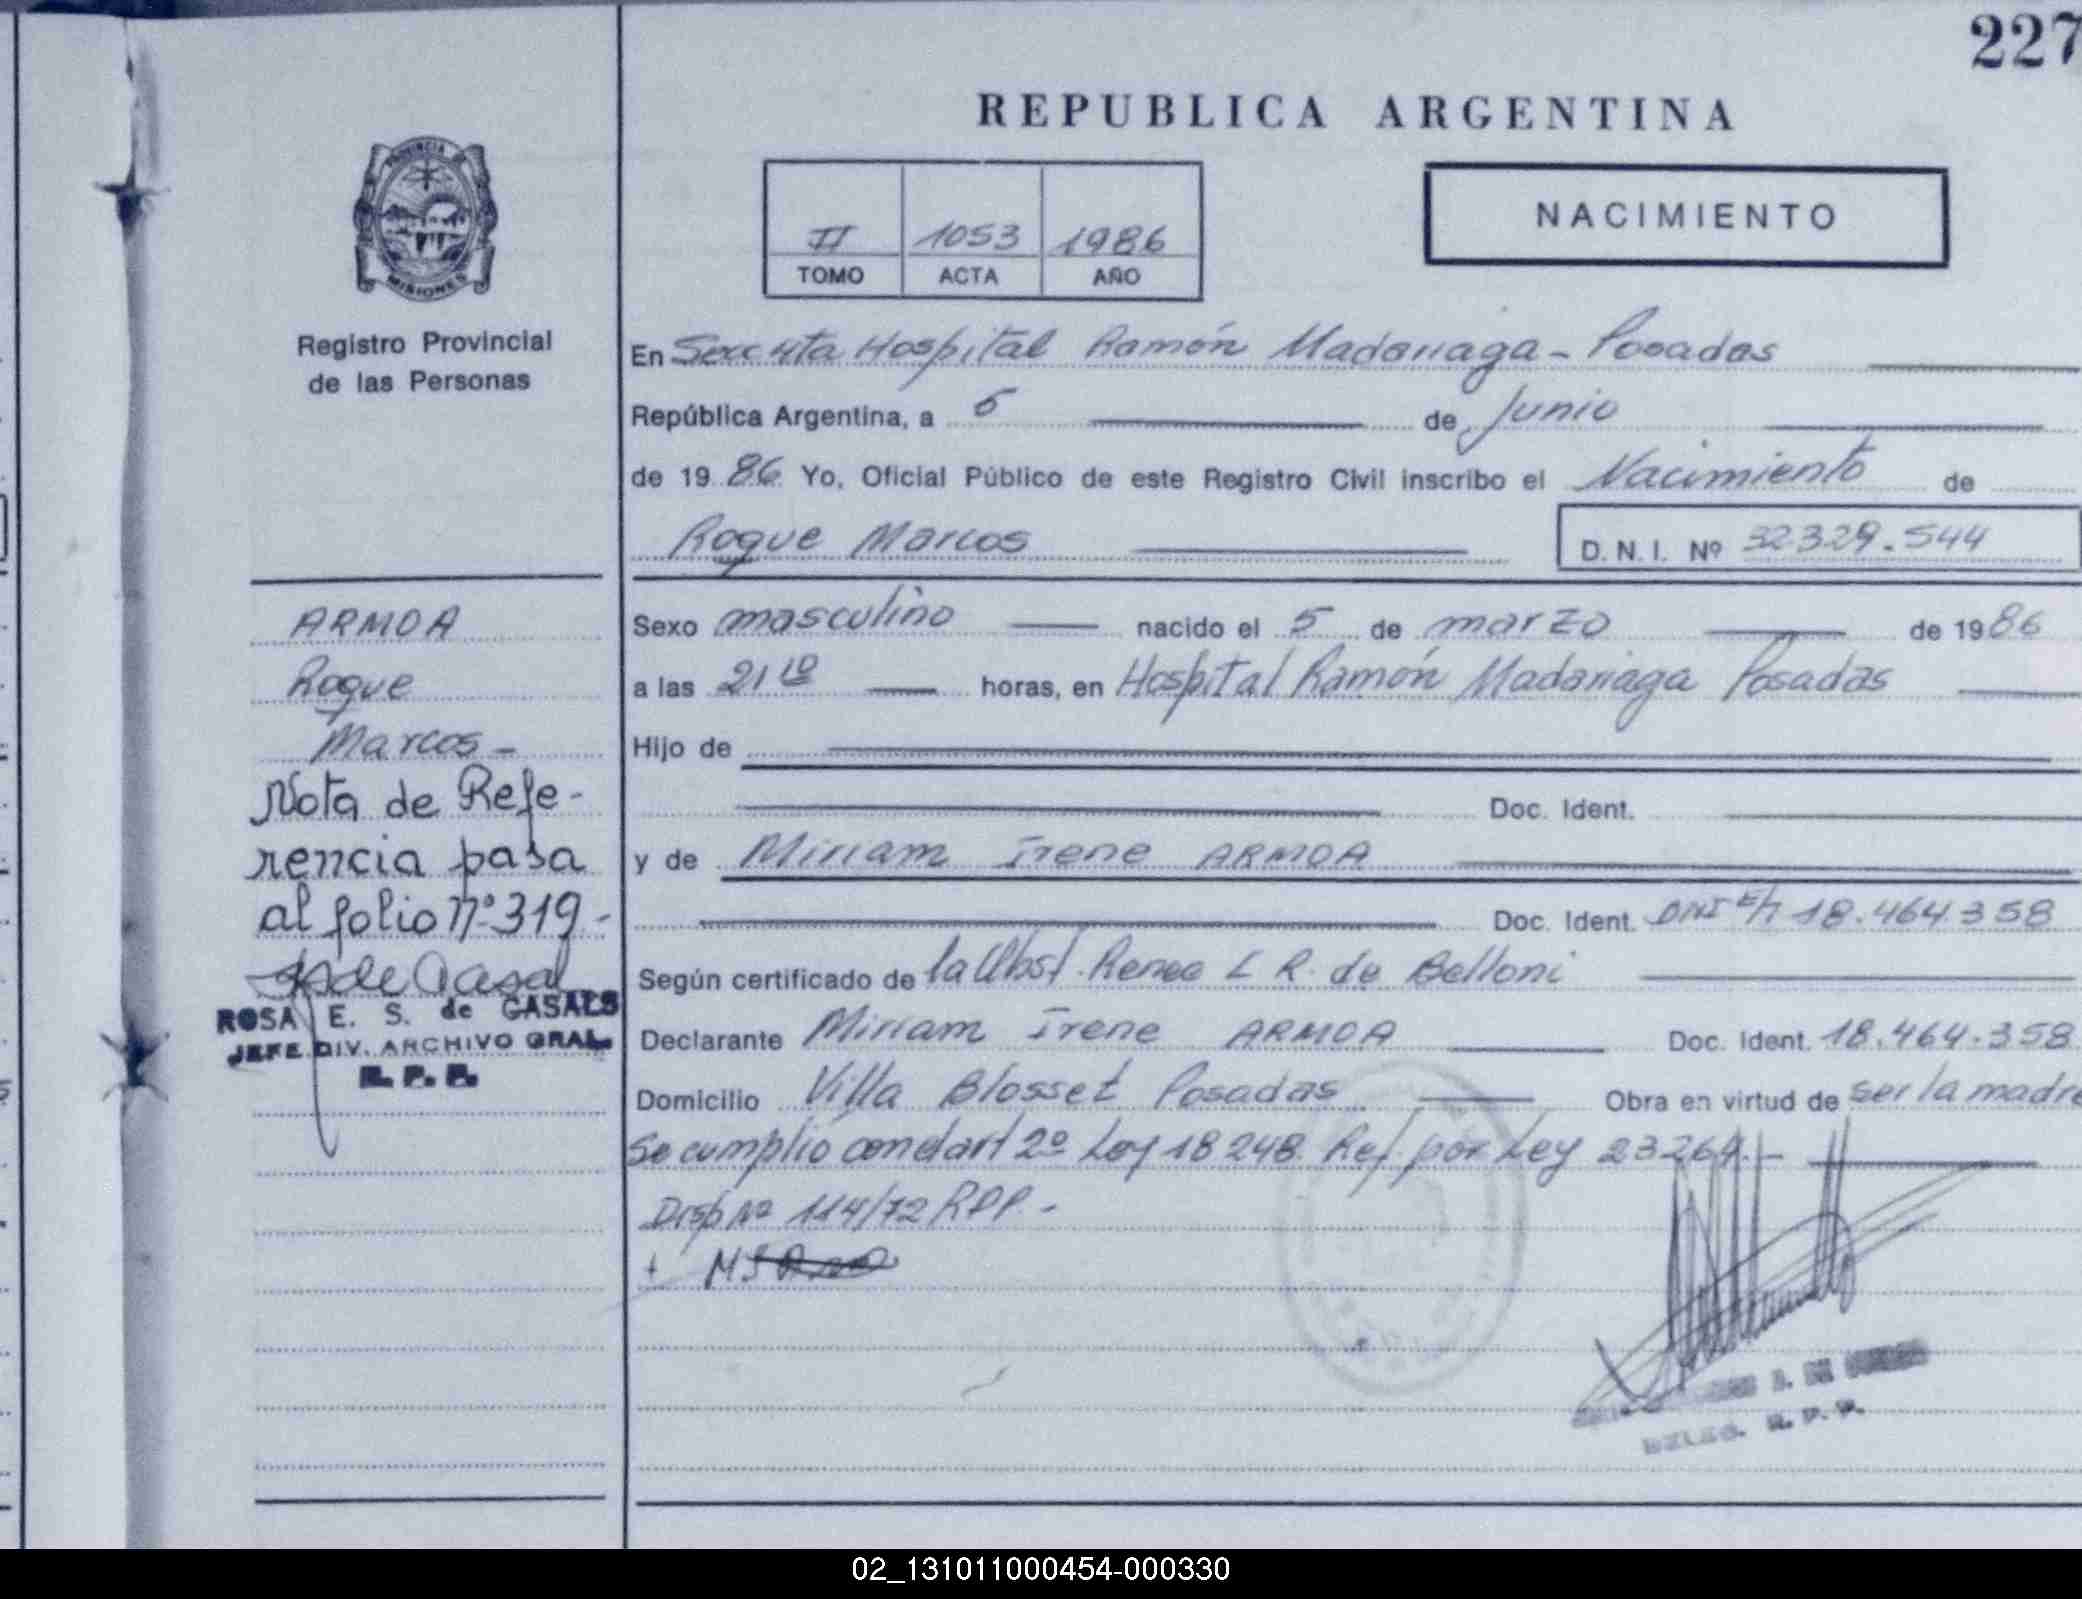 227
REPUBLICA ARGENTINA
PROVINCIA DE
MISIONES
Registro Provincial
de las Personas
II 1053 1986
TOMO ACTA AÑO
NACIMIENTO
En Secc 4ta Hospital Ramón Madariaga - Posadas
República Argentina, a 6 de Junio
de 19 86 Yo, Oficial Público de este Registro Civil inscribo el Nacimiento de
Roque Marcos D. N. I. Nº 32329.544
Sexo masculino nacido el 5 de marzo de 1986
a las 21 10 horas, en Hospital Ramón Madariaga Posadas
Hijo de
Doc. Ident.
y de Miriam Irene ARMOA
Doc. Ident. DNI E/T 18.464.358
Según certificado de la Obst. Renee L R. de Belloni
Declarante Miriam Irene ARMOA Doc. Ident. 18.464.358
Domicilio Villa Blosset Posadas Obra en virtud de ser la madre
Se cumplio con el art 2º Ley 18248 Ref. por Ley 23264.-
Disp Nº 114/72 RPP.-
ARMOA
Roque
Marcos -
Nota de Refe-
rencia pasa
al folio nº 319-
RS de Casal
ROSA E. S. de CASALS
JEFE DIV. ARCHIVO GRAL.
R. P. P.
R. P. P.
02_131011000454-000330